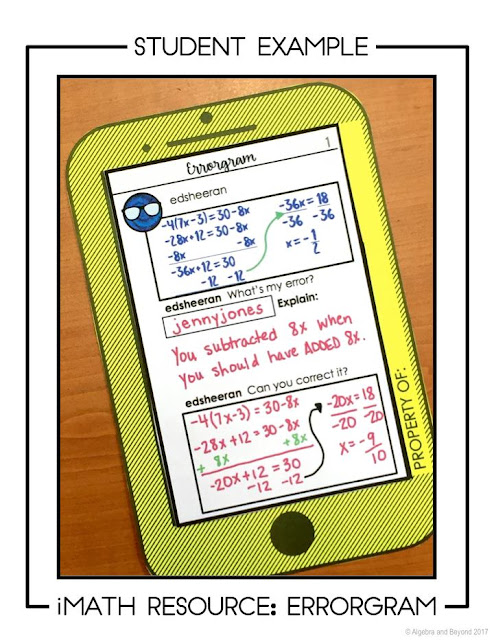 STUDENT EXAMPLE
Errorgram
1
edsheeran
-4(7x-3)=30-8x
-28x+12=30-8x
-8x -8x
-36x+12=30
-12 -12
-36x=18
-36 -36
x=-1/2
edsheeran What's my error?
jennyjones Explain:
You subtracted 8x when
you should have ADDED 8x.
edsheeran Can you correct it?
-4(7x-3)=30-8x
-28x+12=30-8x
+8x +8x
-20x+12=30
-12 -12
-20x=18
-20 -20
x=-9/10
PROPERTY OF:
iMATH RESOURCE: ERRORGRAM
© Algebra and Beyond 2017